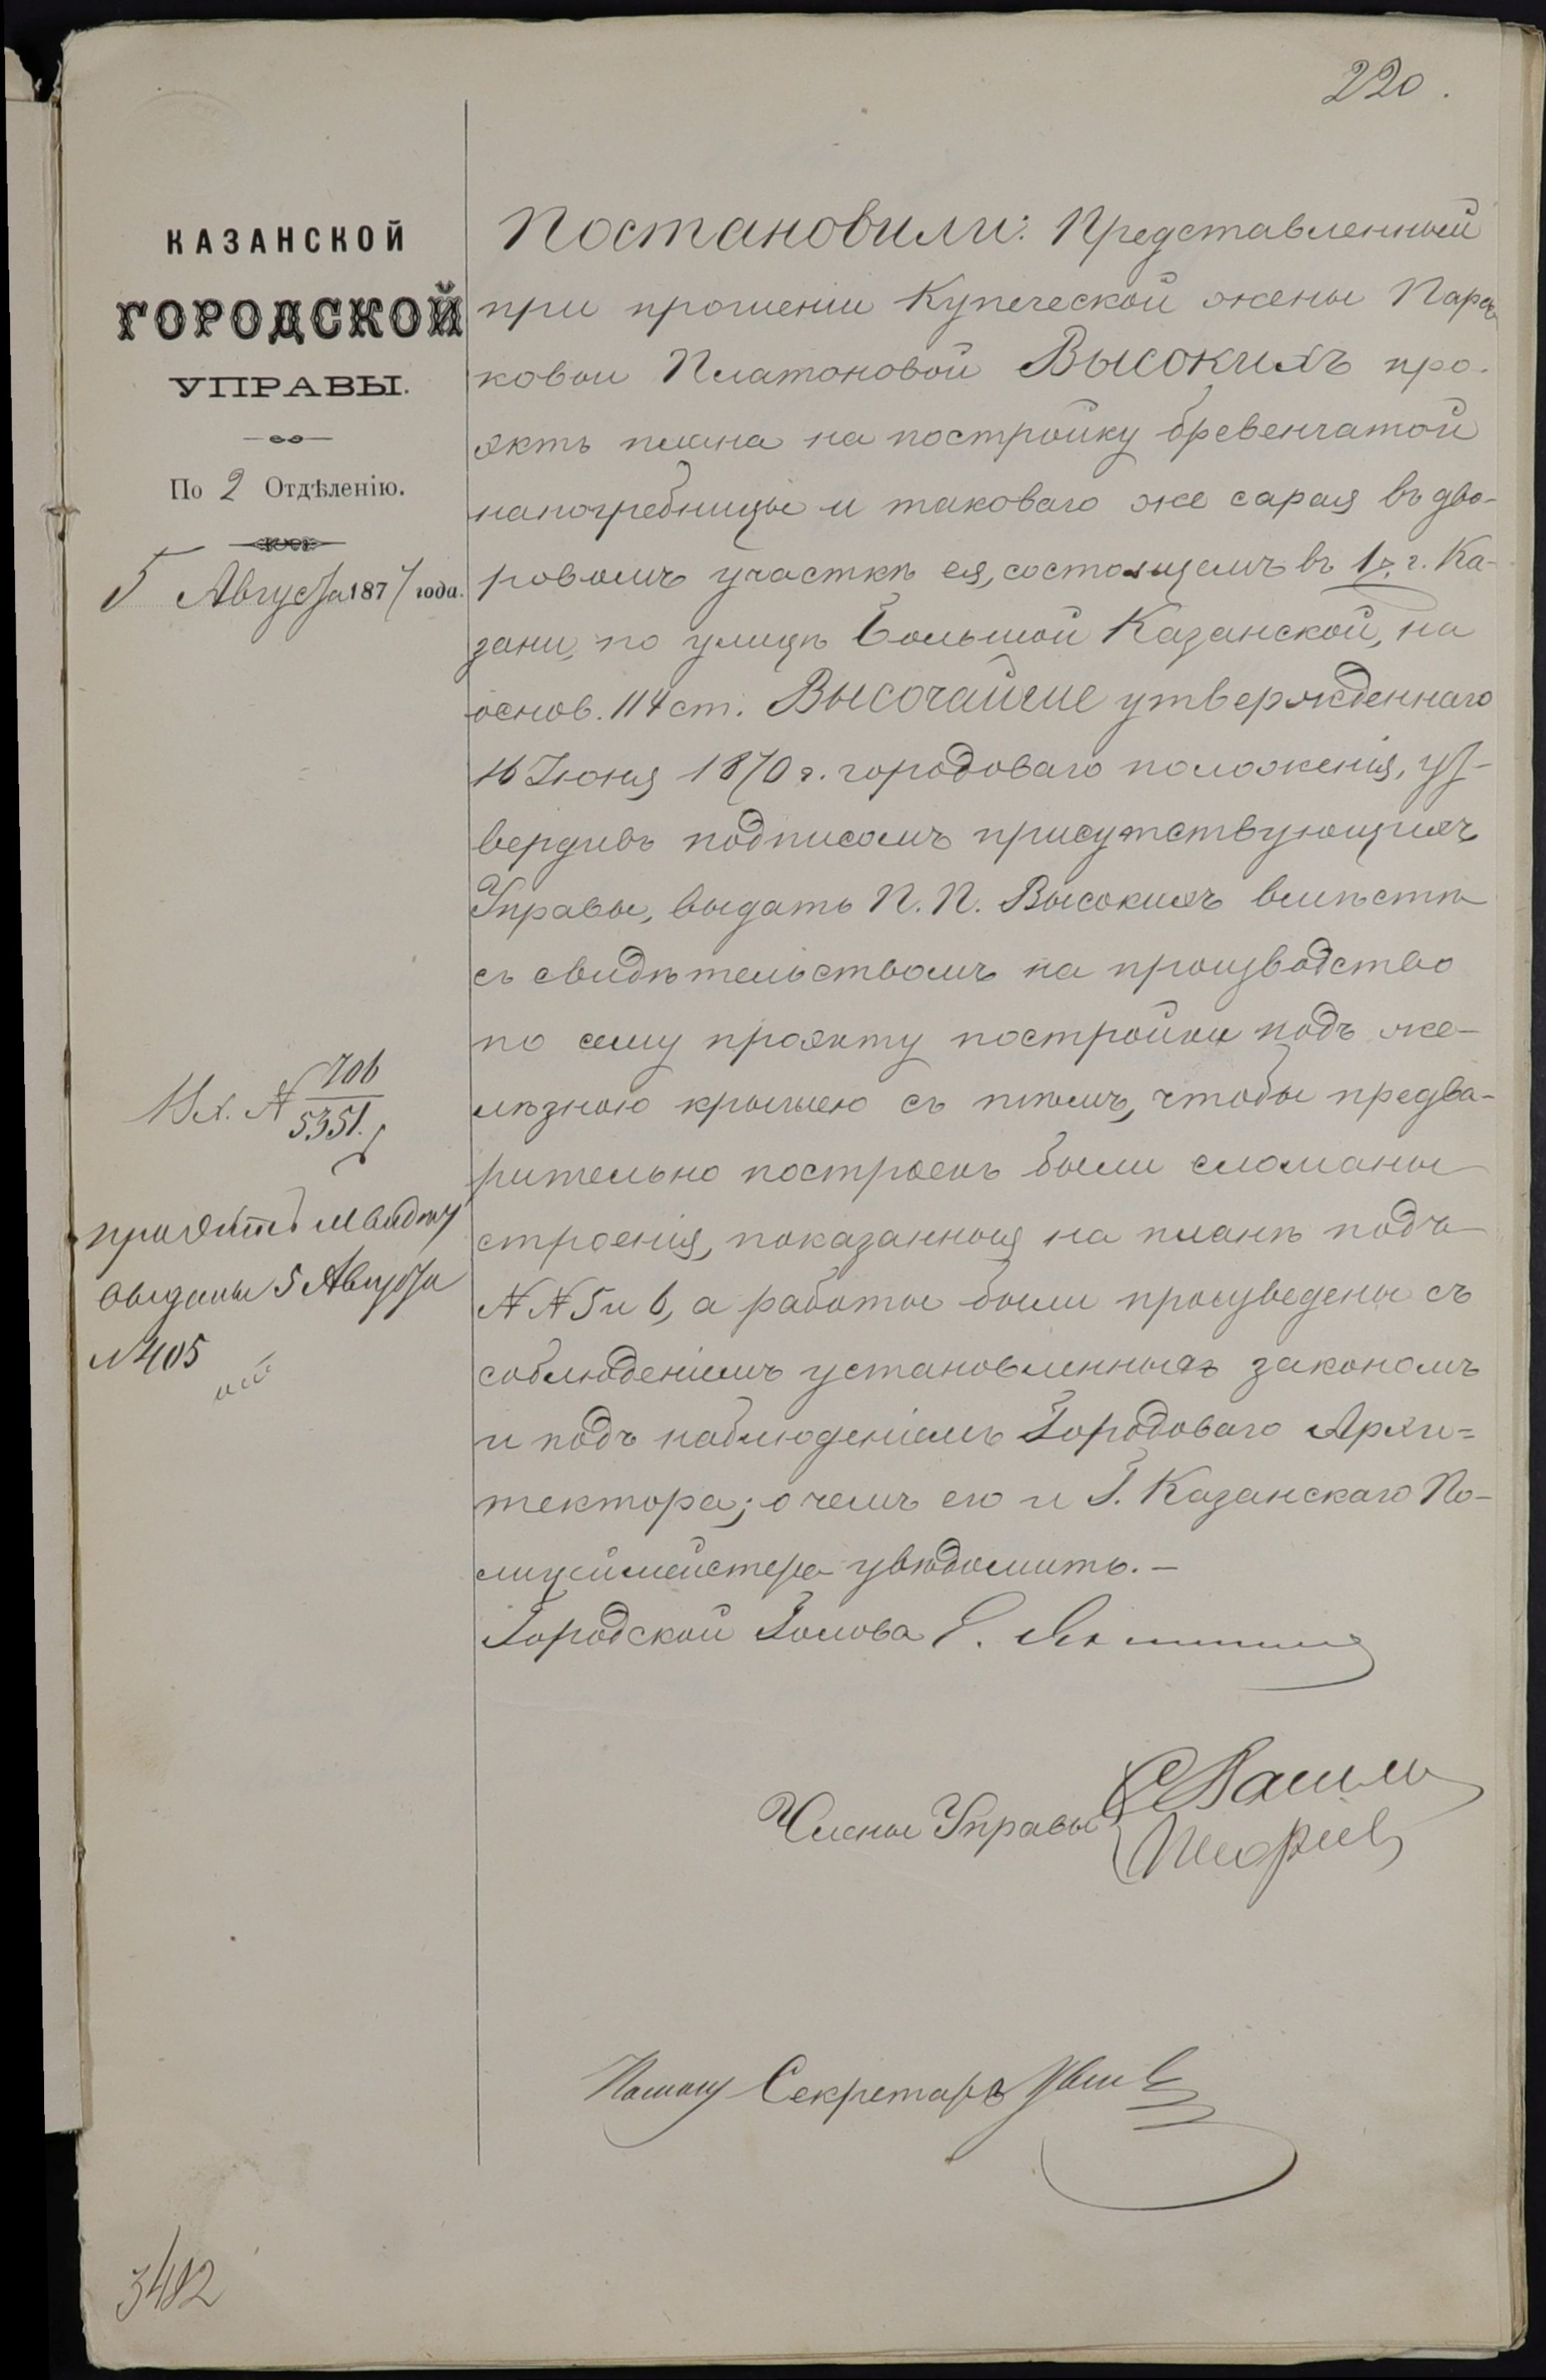 220.
КАЗАНСКОЙ
ГОРОДСКОЙ
УПРАВЫ.
По 2 Отдѣленію.
5 Августа 1877 года.
Вх. № 706
5351.
выданы 5 Августа
№ 405
Постановили: Представленный
при прошеніи Купеческой жены Парас
ковьи Платоновой Высокихъ про-
эктъ плана на постройку бревенчатой
напогребницы и таковаго же сарая въ дво-
ровомъ участкѣ ея, состоящемъ въ 1 ч. г. Ка-
зани, по улицѣ Большой Казанской, на
основ. 114 ст. Высочайше утвержденнаго
16 Іюня 1870 г. городоваго положенія, ут-
вердивъ подписомъ присутствующихъ
Управы, выдать П. П. Высокихъ вмѣстѣ
съ свидѣтельствомъ на производство
по сему проэкту постройки подъ же-
лѣзною крышею съ тѣмъ, чтобы предва-
рительно построекъ были сломаны
строенія, показанныя на планѣ подъ
№ № 5 и 6, а работы были произведены съ
соблюденіемъ установленныхъ закономъ
и подъ наблюденіемъ Городоваго Архи-
тектора; о чемъ его и Г. Казанскаго По-
лицеймейстера увѣдомить. —
Городской Голова
Члены Управы
Секретарь
3482